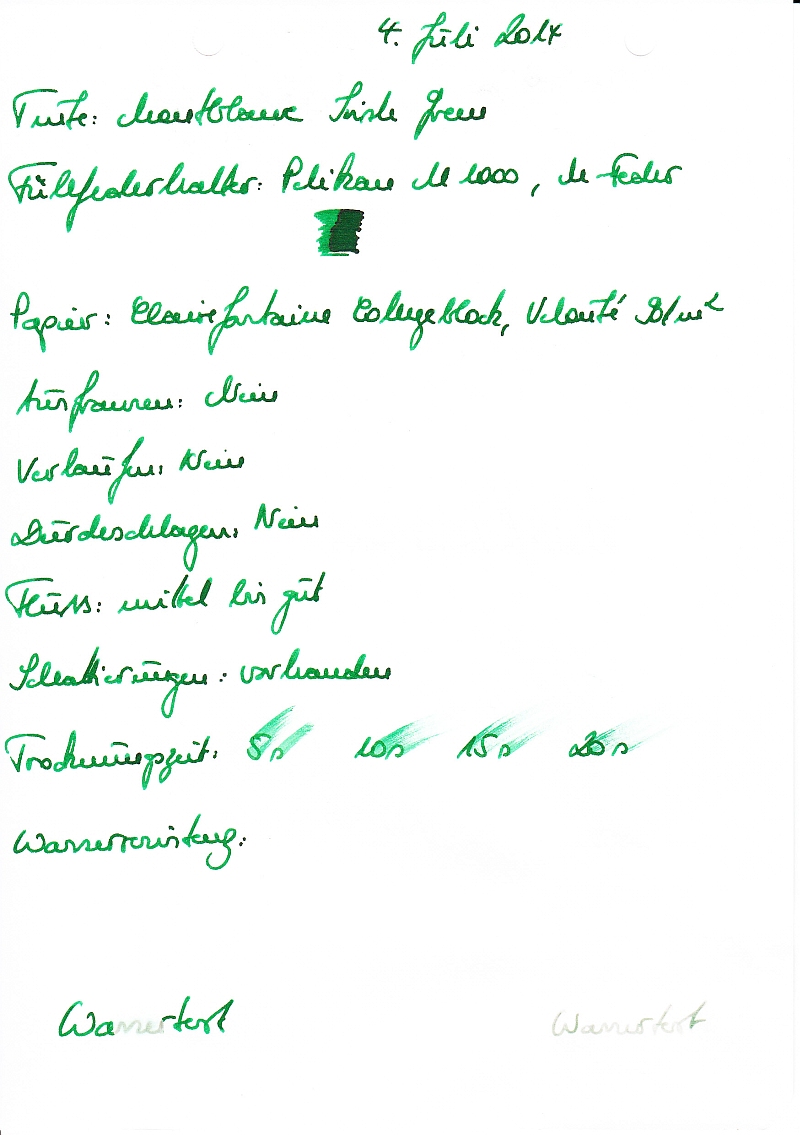 4. Juli 2014
Tinte: Montblanc Irish Green
Füllfederhalter: Pelikan M 1000, M-Feder
Papier: Clairefontaine Collegeblock, Velouté 90g/m²
Ausfransen: Nein
Verlaufen: Nein
Durchschlagen: Nein
Fluss: mittel bis gut
Schattierungen: vorhanden
Trocknungszeit: 5s 10s 15s 20s
Wasserresistenz:
Wassertest Wassertest